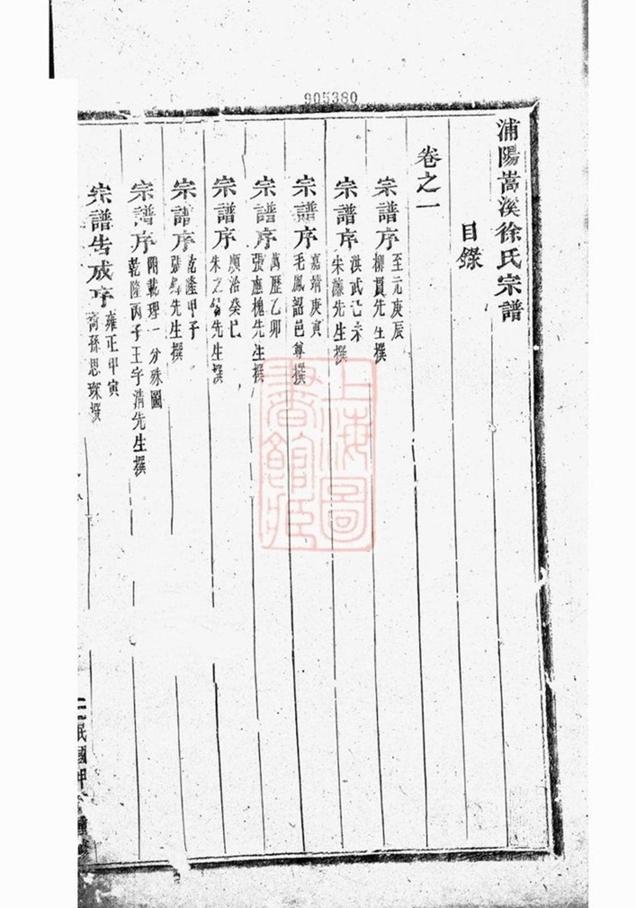 905380
浦陽嵩溪徐氏宗譜
目錄
卷之一
宗譜序
至元庚辰
柳貫先生撰
宗譜序
洪武己未
宋濂先生撰
宗譜序
嘉靖庚寅
毛鳳韶邑尊撰
宗譜序
萬歷乙卯
張應槐先生撰
宗譜序
順治癸巳
朱之 先生撰
宗譜序
乾隆甲子
張 先生撰
宗譜序
附載理一分殊圖
乾隆丙子王宇清先生撰
宗譜告成序
雍正甲寅
裔孫思琛撰
民國
上海圖
書館藏